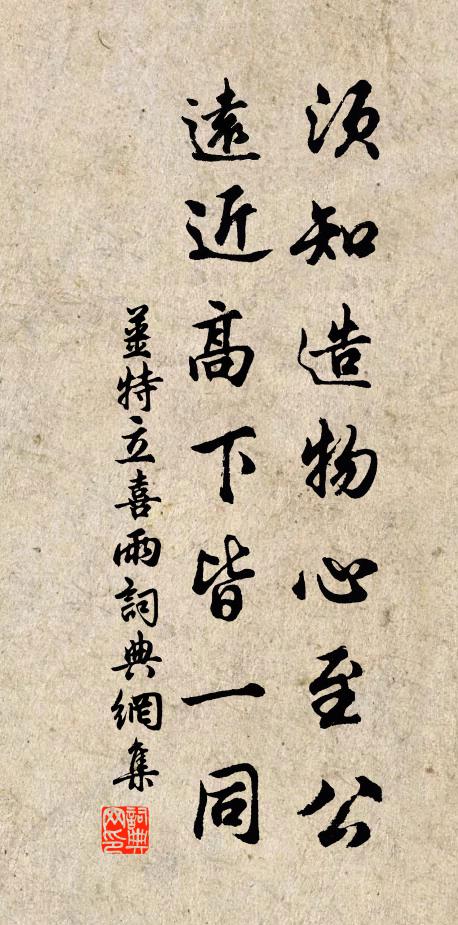 須知造物心至公
遠近高下皆一同
姜特立喜雨詞典網集
詞典網印